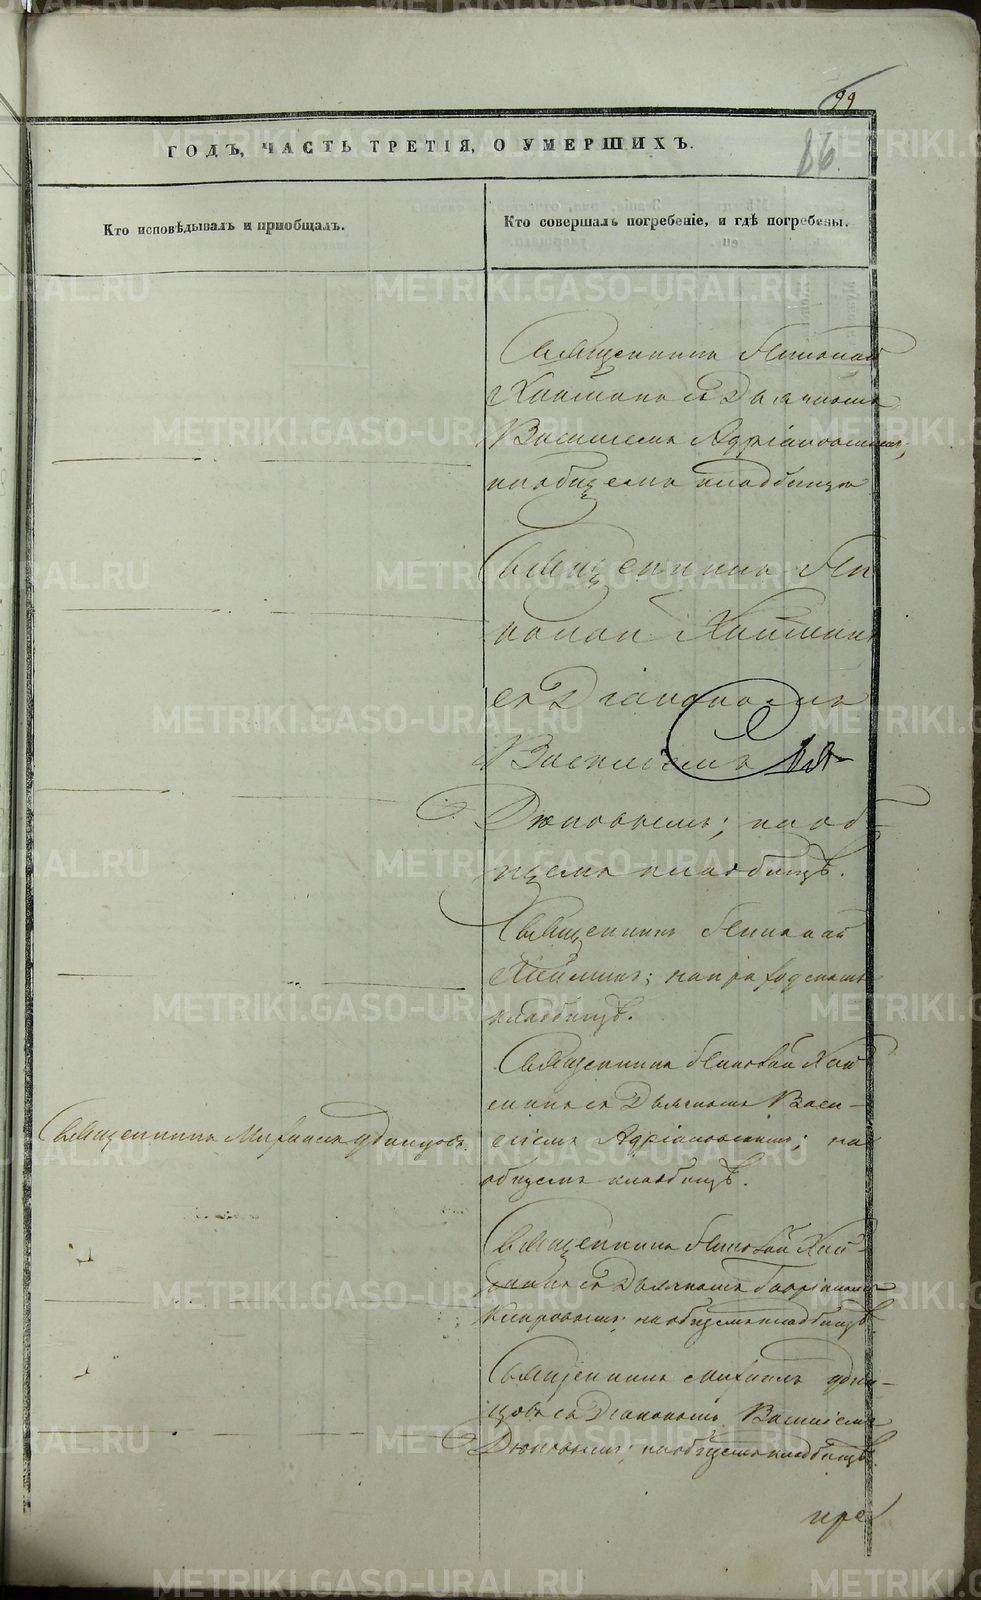 99
86
ГОДЪ, ЧАСТЬ ТРЕТІЯ, О УМЕРШИХЪ.
Кто исповѣдывалъ и пріобщалъ.
Кто совершалъ погребеніе, и гдѣ погребены.
Священникъ Николай
съ Дьячкомъ
Василіемъ Адріановскимъ,
на общемъ кладбищѣ
Священникъ Ни
колай
съ Діакономъ
Василіемъ
Дюковымъ; на об-
щемъ кладбищѣ.
Священникъ Николай
на приходскомъ
кладбищѣ.
Священникъ Николай
съ Дьячкомъ Васи-
ліемъ Адріановскимъ; на
общемъ кладбищѣ.
Священникъ Михаилъ Удинцовъ.
Священникъ Николай
съ Дьячкомъ
на общемъ кладбищѣ
Священникъ Михаилъ Удин-
цовъ съ Діакономъ Василіемъ
Дюковымъ; на общемъ кладбищѣ.
METRIKI.GASO-URAL.RU